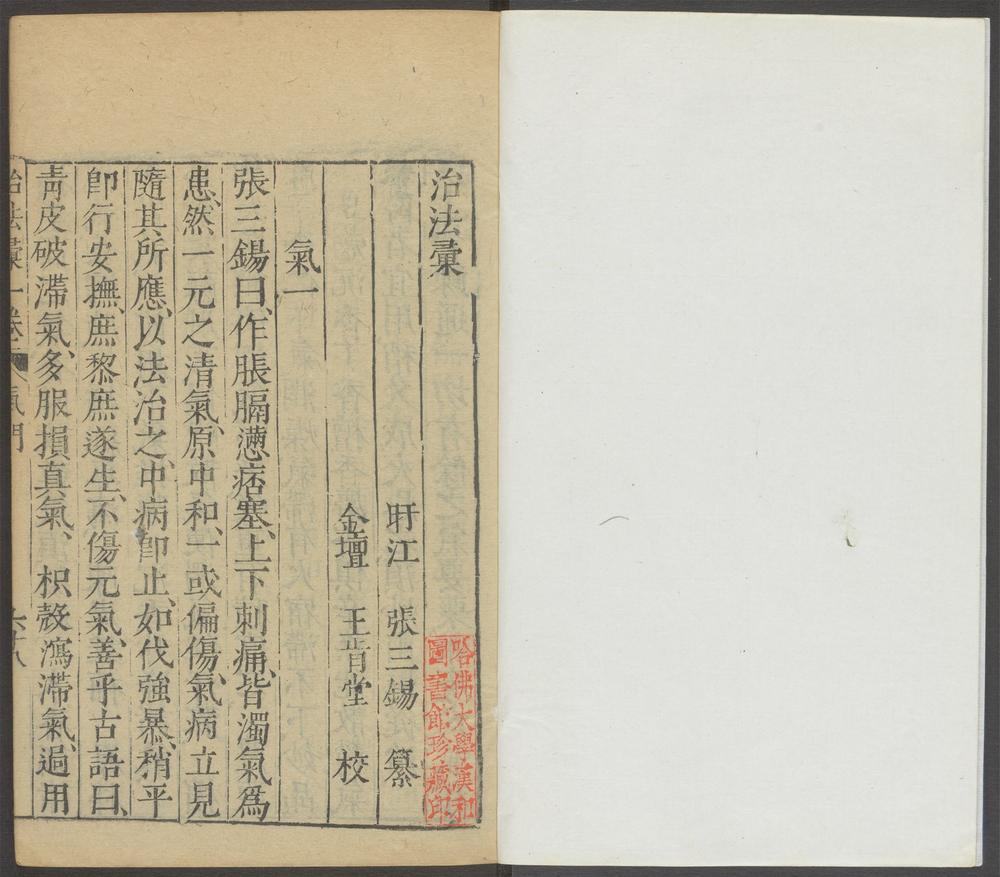 治法彙
盱江 張三錫 纂
金壇 王肯堂 校
氣一
張三錫曰、作脹膈懣痞塞、上下刺痛、皆濁氣爲
患、然一元之清氣、原中和、一或偏傷、氣病立見
隨其所應、以法治之、中病卽止、如伐強暴、稍平
卽行安撫、庶黎庶遂生、不傷元氣、善乎古語曰、
靑皮破滯氣、多服損真氣、枳殼瀉滯氣、過用
治法彙 一卷 氣門 六十八
哈佛大學漢和
圖書館珍藏印